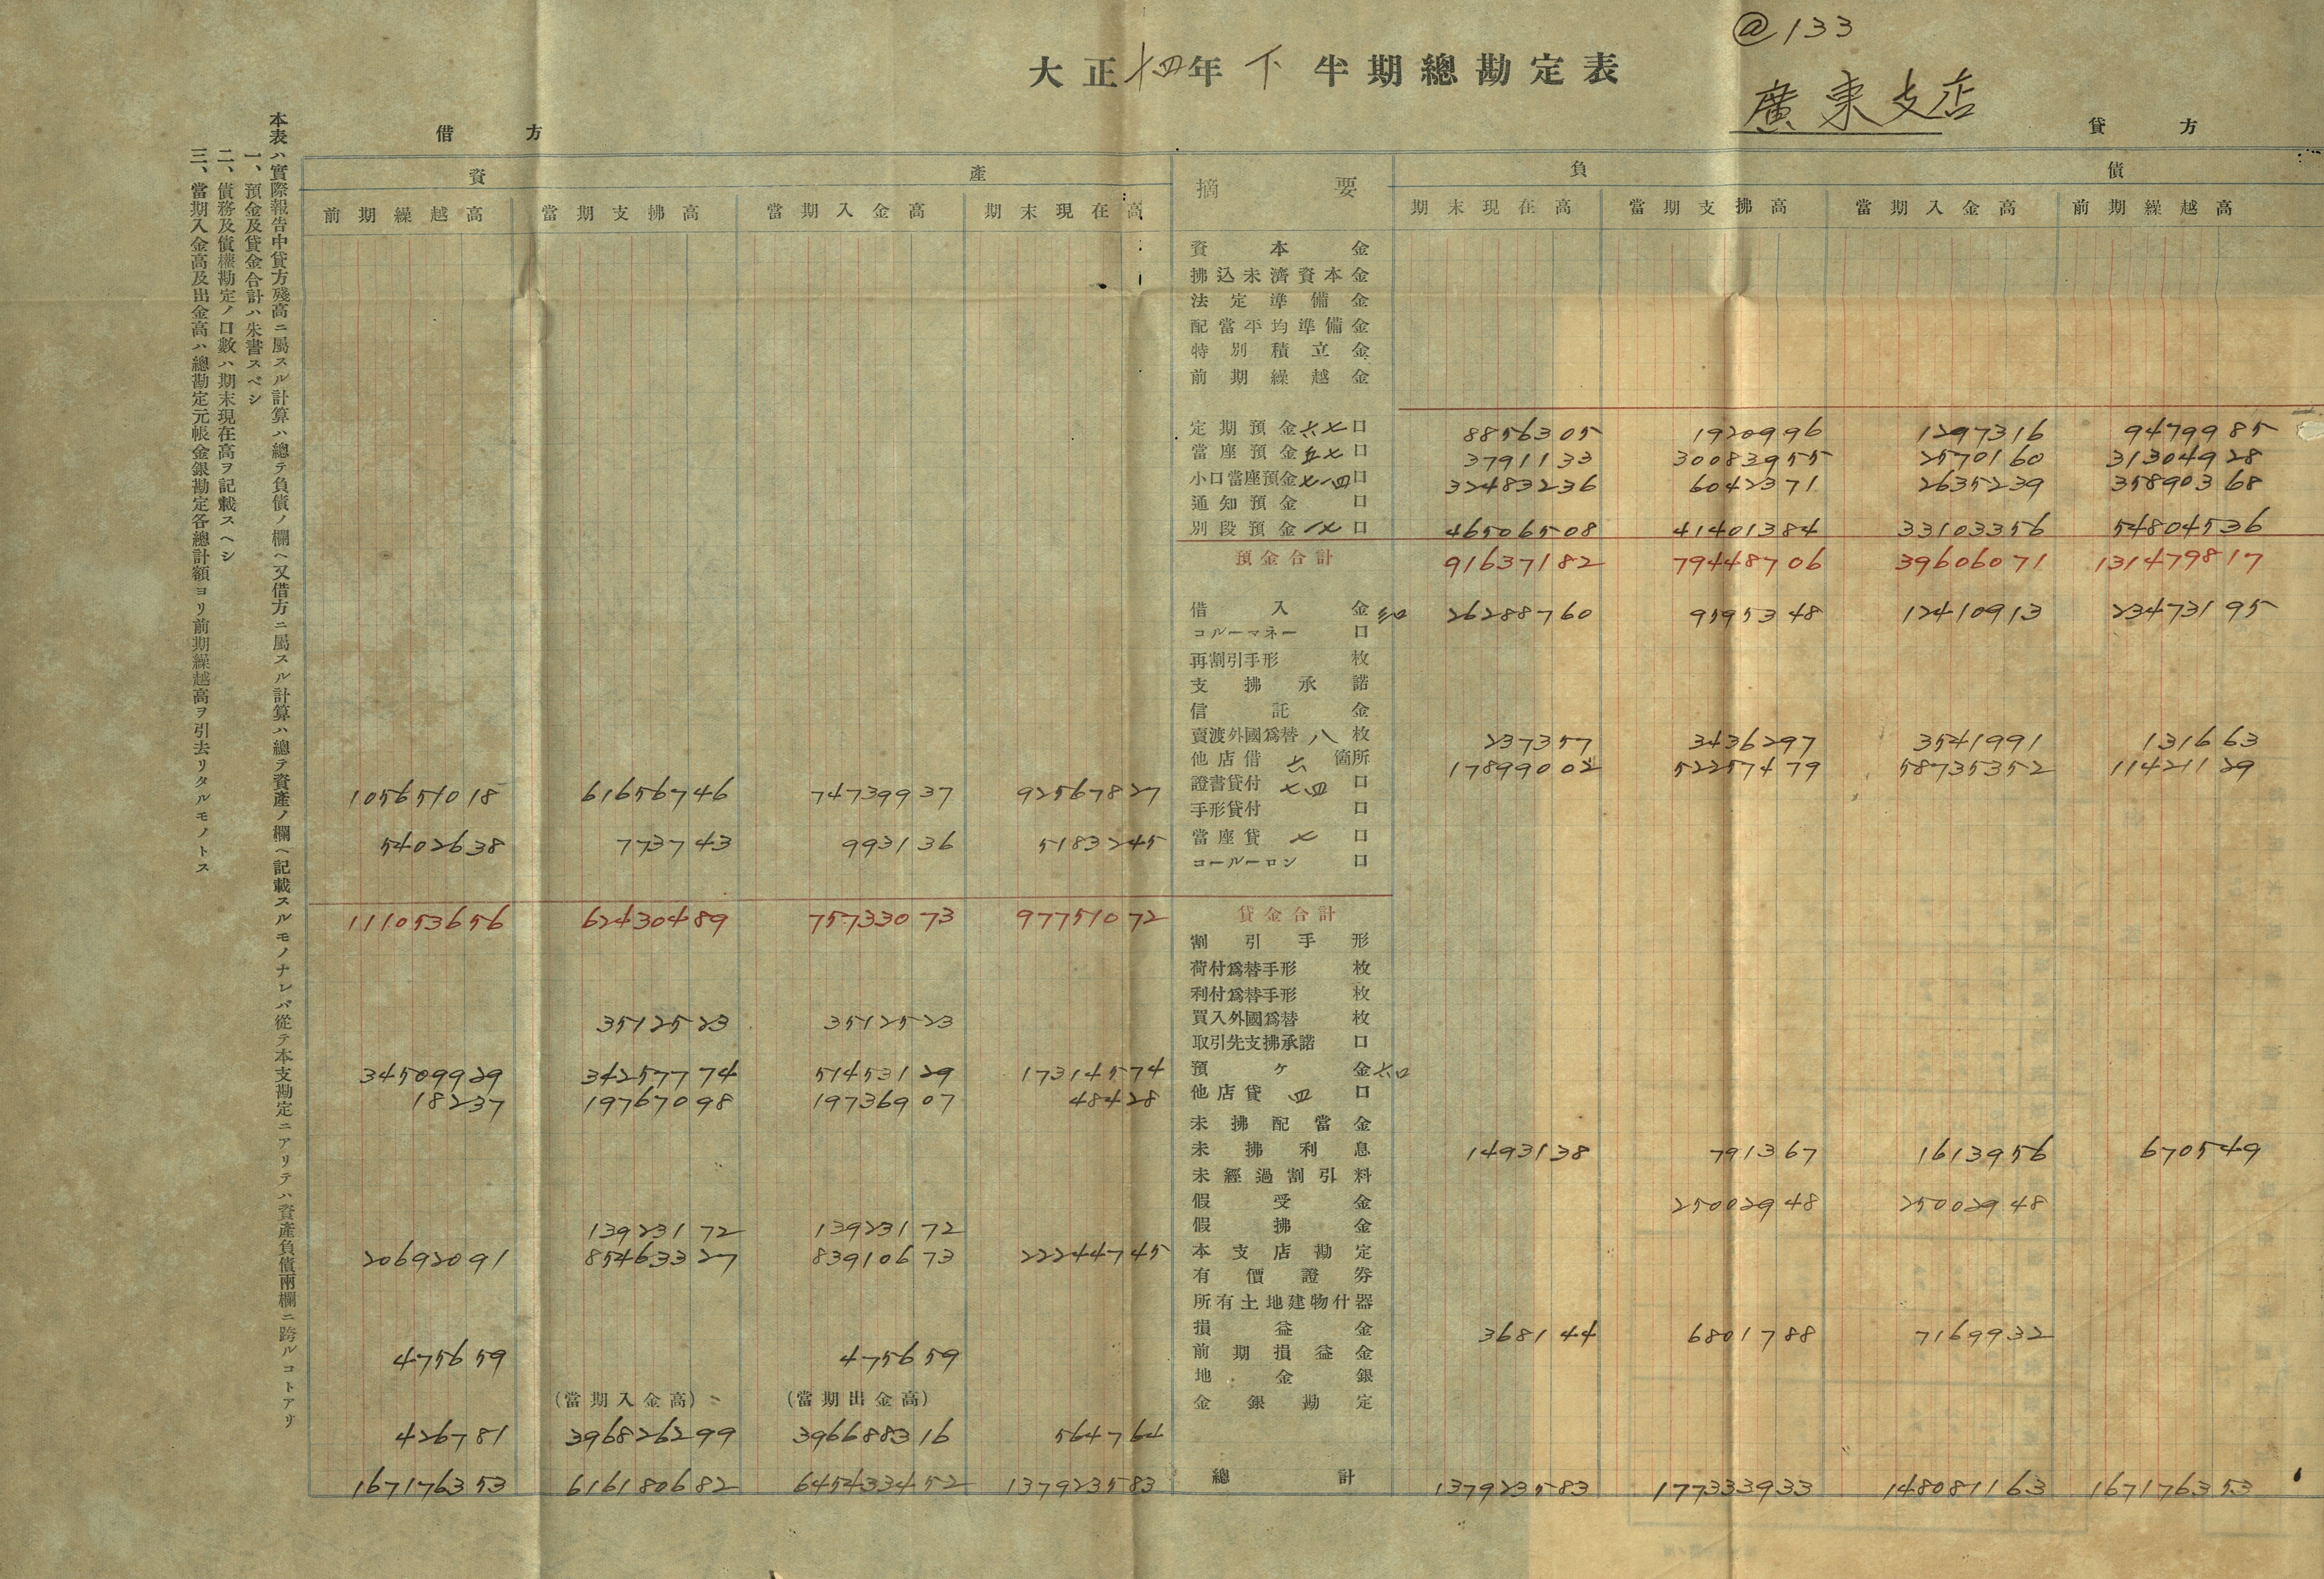 @133
大正十四年下半期總勘定表
廣東支店
借方
貸方
資產
摘要
負債
前期繰越高 當期支拂高 當期入金高 期末現在高 期末現在高 當期支拂高 當期入金高 前期繰越高
資本金
拂込未濟資本金
法定準備金
配當平均準備金
特別積立金
前期繰越金
定期預金六七口 8856305 1920996 1297316 9479985
當座預金五七口 3791133 30083955 2570160 31304928
小口當座預金七一四口 32483236 6042371 2635239 35890368
通知預金 口
別段預金一七口 46506508 41401384 33103356 54804536
預金合計 91637182 79448706 39606071 131479817
借入金三口 26288760 9595348 12410913 23473195
コルーマネー 口
再割引手形 枚
支拂承諾
信託金
賣渡外國爲替八枚 237357 3436297 3541991 131663
他店借六箇所 17899002 52257479 58735352 11421129
105651018 61656746 74739937 92567827 證書貸付七四口
手形貸付 口
5402638 773743 993136 5183245 當座貸七口
コールーロン 口
111053656 62430489 75733073 97751072 貸金合計
割引手形
荷付爲替手形 枚
利付爲替手形 枚
3512523 3512523 買入外國爲替 枚
取引先支拂承諾 口
34509929 34257774 51453129 17314574 預ケ金六口
18237 19767098 19736907 48428 他店貸四口
未拂配當金
未拂利息 1493138 791367 1613956 670549
未經過割引料
假受金 25002948 25002948
13923172 13923172 假拂金
20692091 85463327 83910673 22244745 本支店勘定
有價證券
所有土地建物什器
損益金 368144 6801788 7169932
475659 475659 前期損益金
地金銀
(當期入金高) (當期出金高) 金銀勘定
426781 396826299 396688316 564764
167176353 616180682 645433452 137923583 總計 137923583 177333933 148081163 167176353
本表ハ實際報告中貸方殘高ニ屬スル計算ハ總テ負債ノ欄ヘ又借方ニ屬スル計算ハ總テ資產ノ欄ヘ記載スルモノナレバ從テ本支勘定ニアリテハ資產負債兩欄ニ跨ルコトアリ
一、預金及貸金合計ハ朱書スベシ
二、債務及債權勘定ノ口數ハ期末現在高ヲ記載スヘシ
三、當期入金高及出金高ハ總勘定元帳金銀勘定各總計額ヨリ前期繰越高ヲ引去リタルモノトス